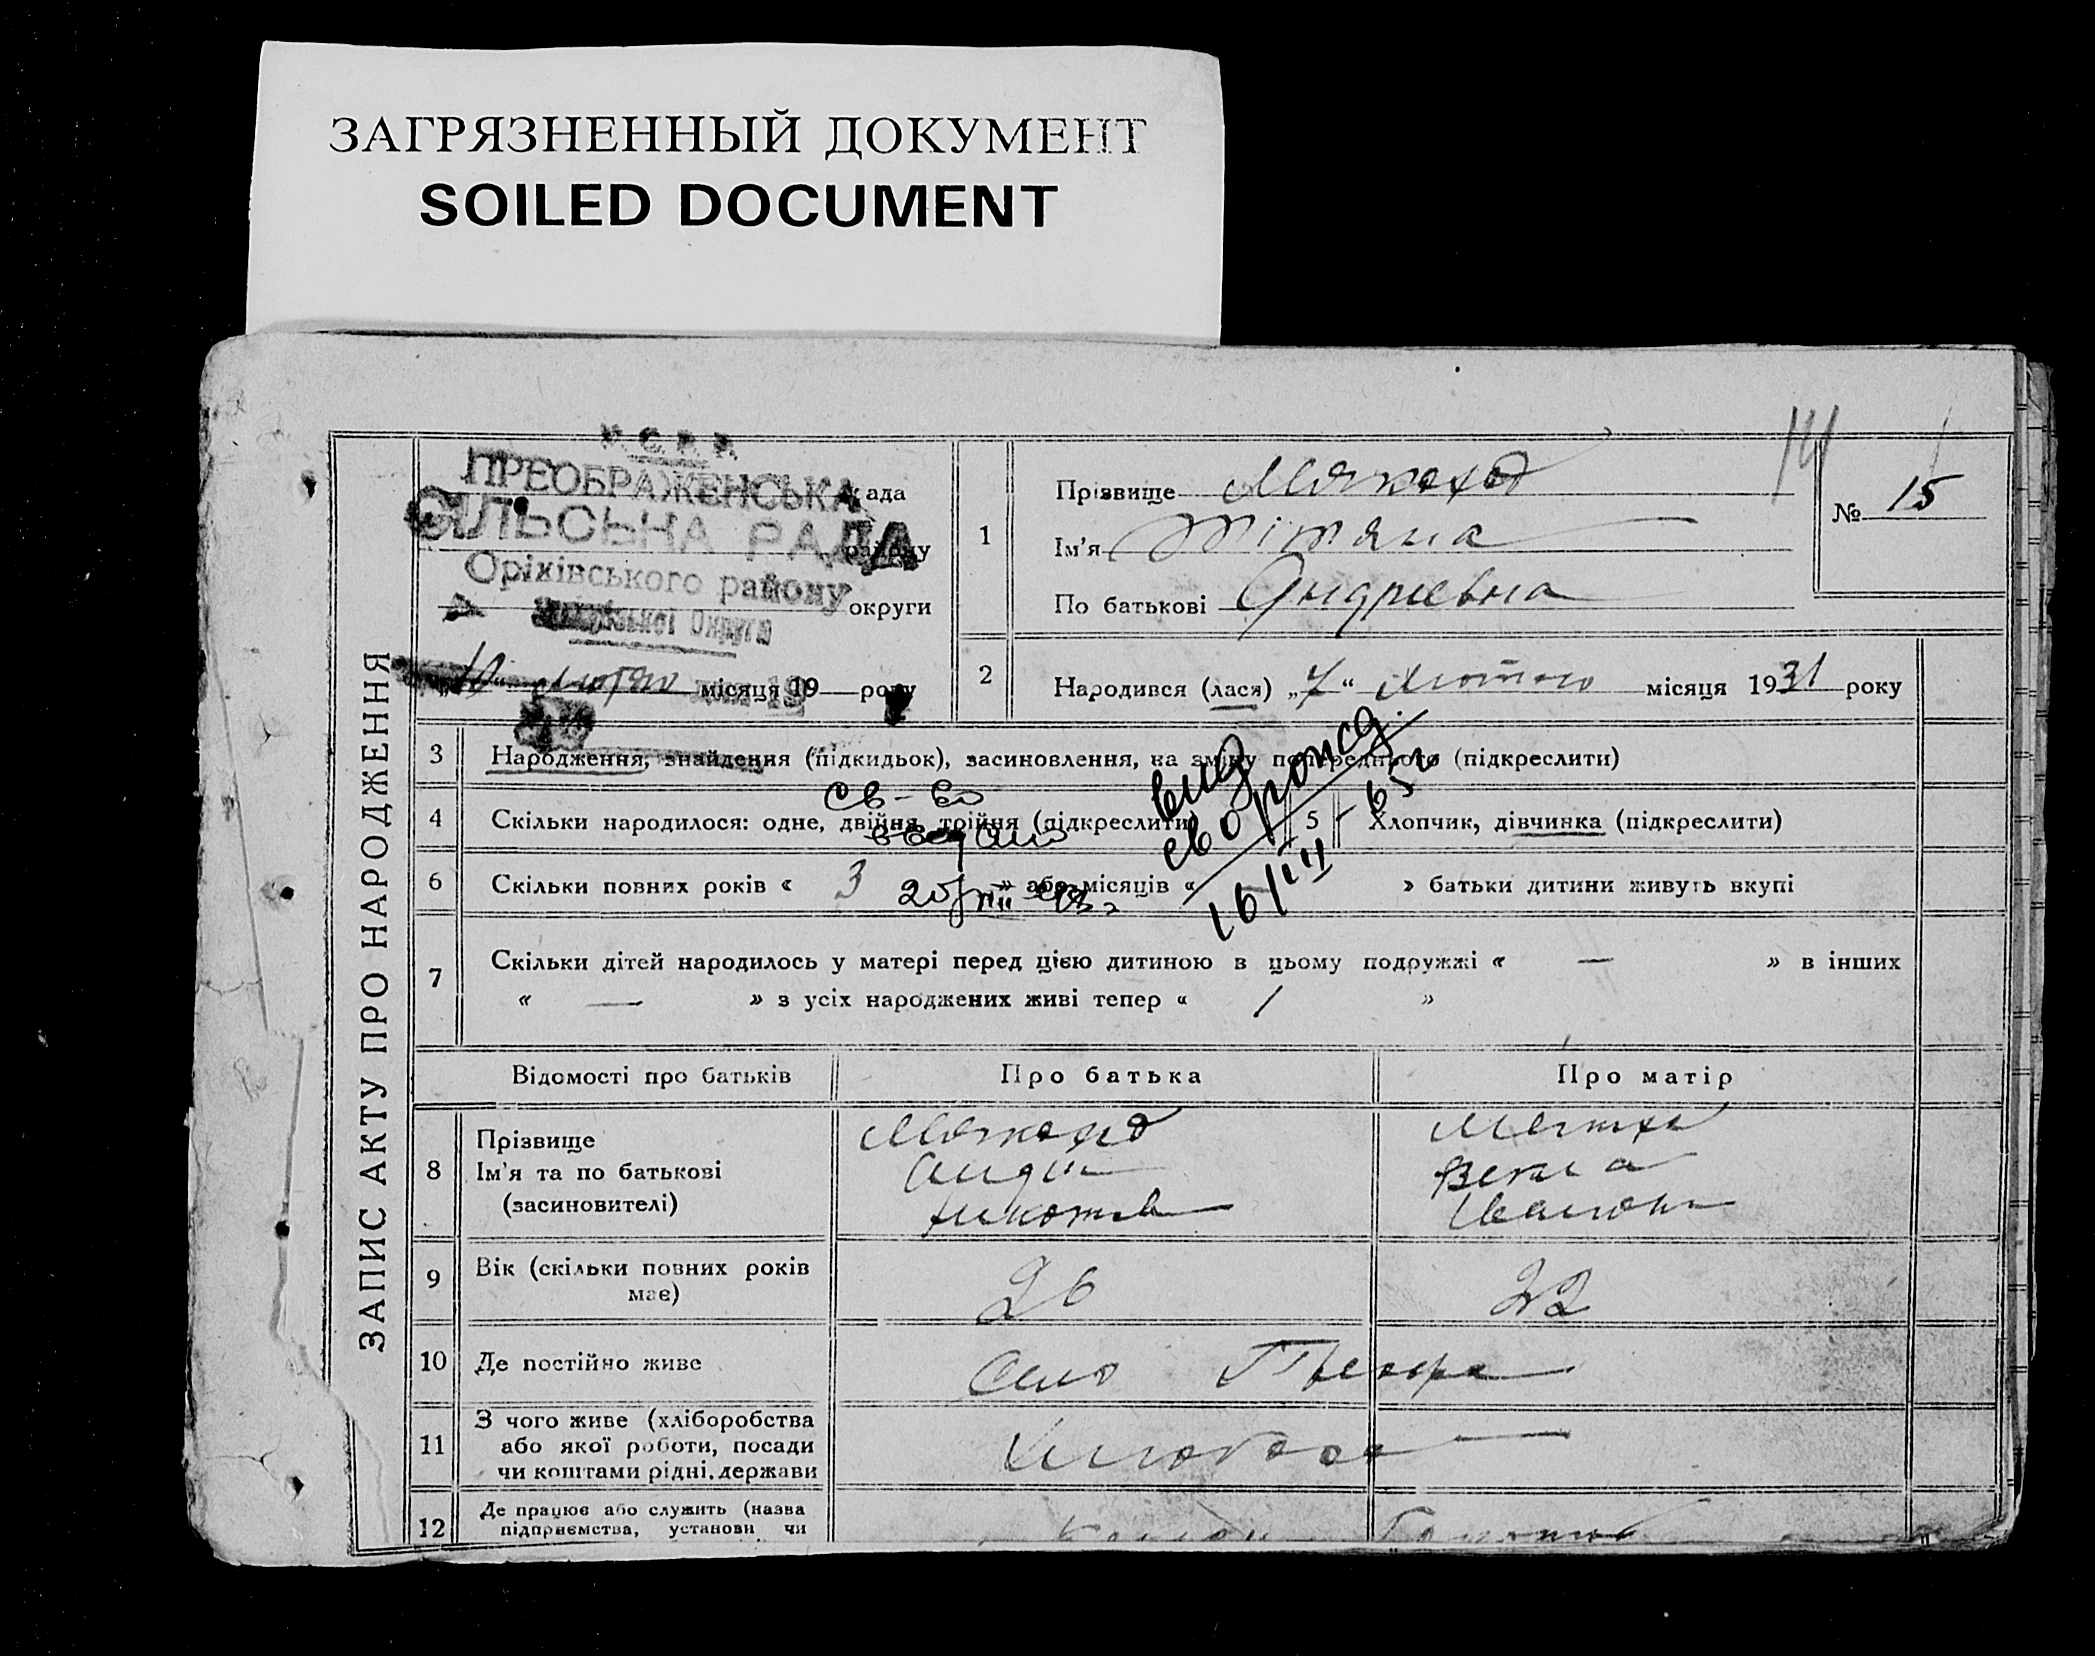 ЗАГРЯЗНЕННЫЙ ДОКУМЕНТ
SOILED DOCUMENT
ЗАПИС АКТУ ПРО НАРОДЖЕННЯ
У.С.Р.Р.
ПРЕОБРАЖЕНСЬКА
СІЛЬСЬНА РАДА
Оріхівського району
Округи
ада
району
округи
„10“ лютого місяця 19 року
1
Прізвище Мякоход
Ім'я Тітяна
По батькові Андріевна
№ 15
2
Народився (лася) „7“ Лютого місяця 1931 року
3 Народження, знайдення (підкидьок), засиновлення, на зміну попереднього (підкреслити)
св-во
4 Скільки народилося: одне, двійня, трійня (підкреслити)
5 Хлопчик, дівчинка (підкреслити)
выд
св о рожд.
16/III - 65 г
6 Скільки повних років « 3 » або місяців « » батьки дитини живуть вкупі
7 Скільки дітей народилось у матері перед цією дитиною в цьому подружжі « — » в інших
« — » з усіх народжених живі тепер « 1 »
Відомості про батьків Про батька Про матір
8 Прізвище
Ім'я та по батькові
(засиновителі)
Мякоход
Іванови
9 Вік (скільки повних років
має)
26 22
10 Де постійно живе
Село
11 З чого живе (хліборобства
або якої роботи, посади
чи коштами рідні, держави
12 Де працює або служить (назва
підприємства, установи чи